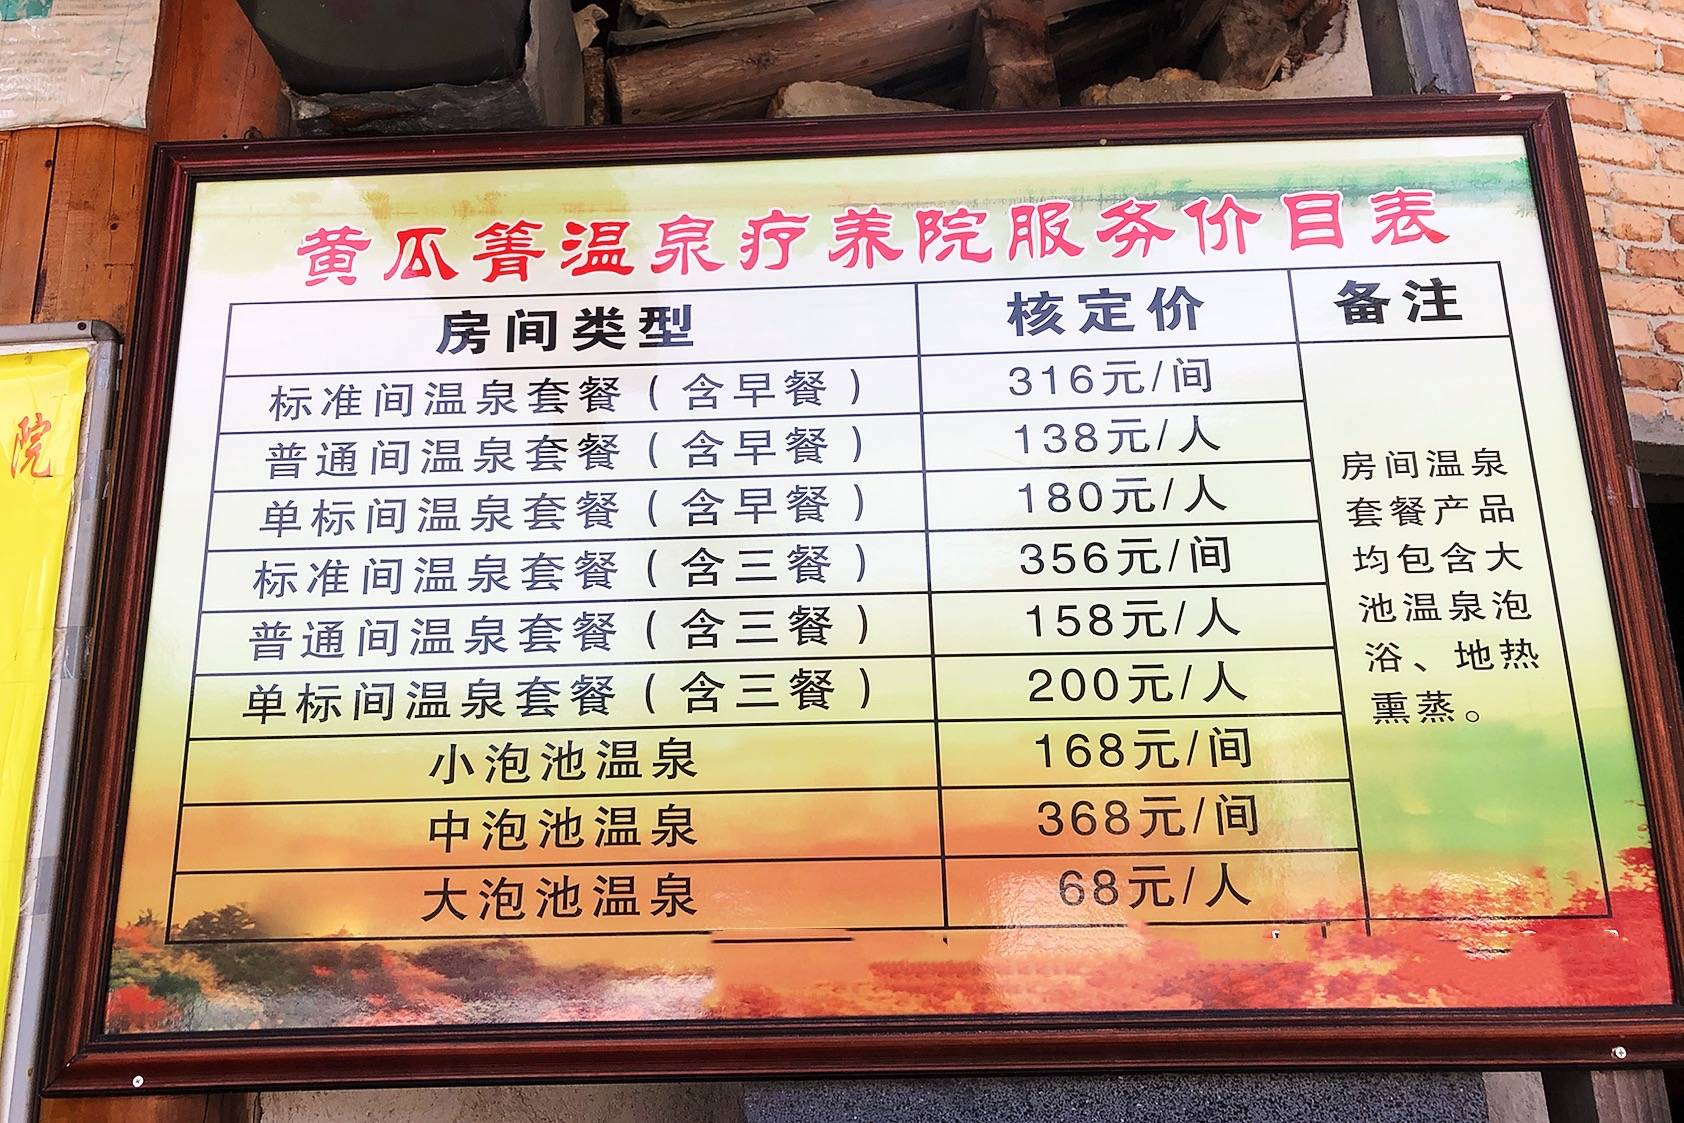 黄瓜箐温泉疗养院服务价目表
房间类型 核定价 备注
标准间温泉套餐（含早餐） 316元/间
普通间温泉套餐（含早餐） 138元/人
单标间温泉套餐（含早餐） 180元/人
标准间温泉套餐（含三餐） 356元/间
普通间温泉套餐（含三餐） 158元/人
单标间温泉套餐（含三餐） 200元/人
小泡池温泉 168元/间
中泡池温泉 368元/间
大泡池温泉 68元/人
房间温泉
套餐产品
均包含大
池温泉泡
浴、地热
熏蒸。
院